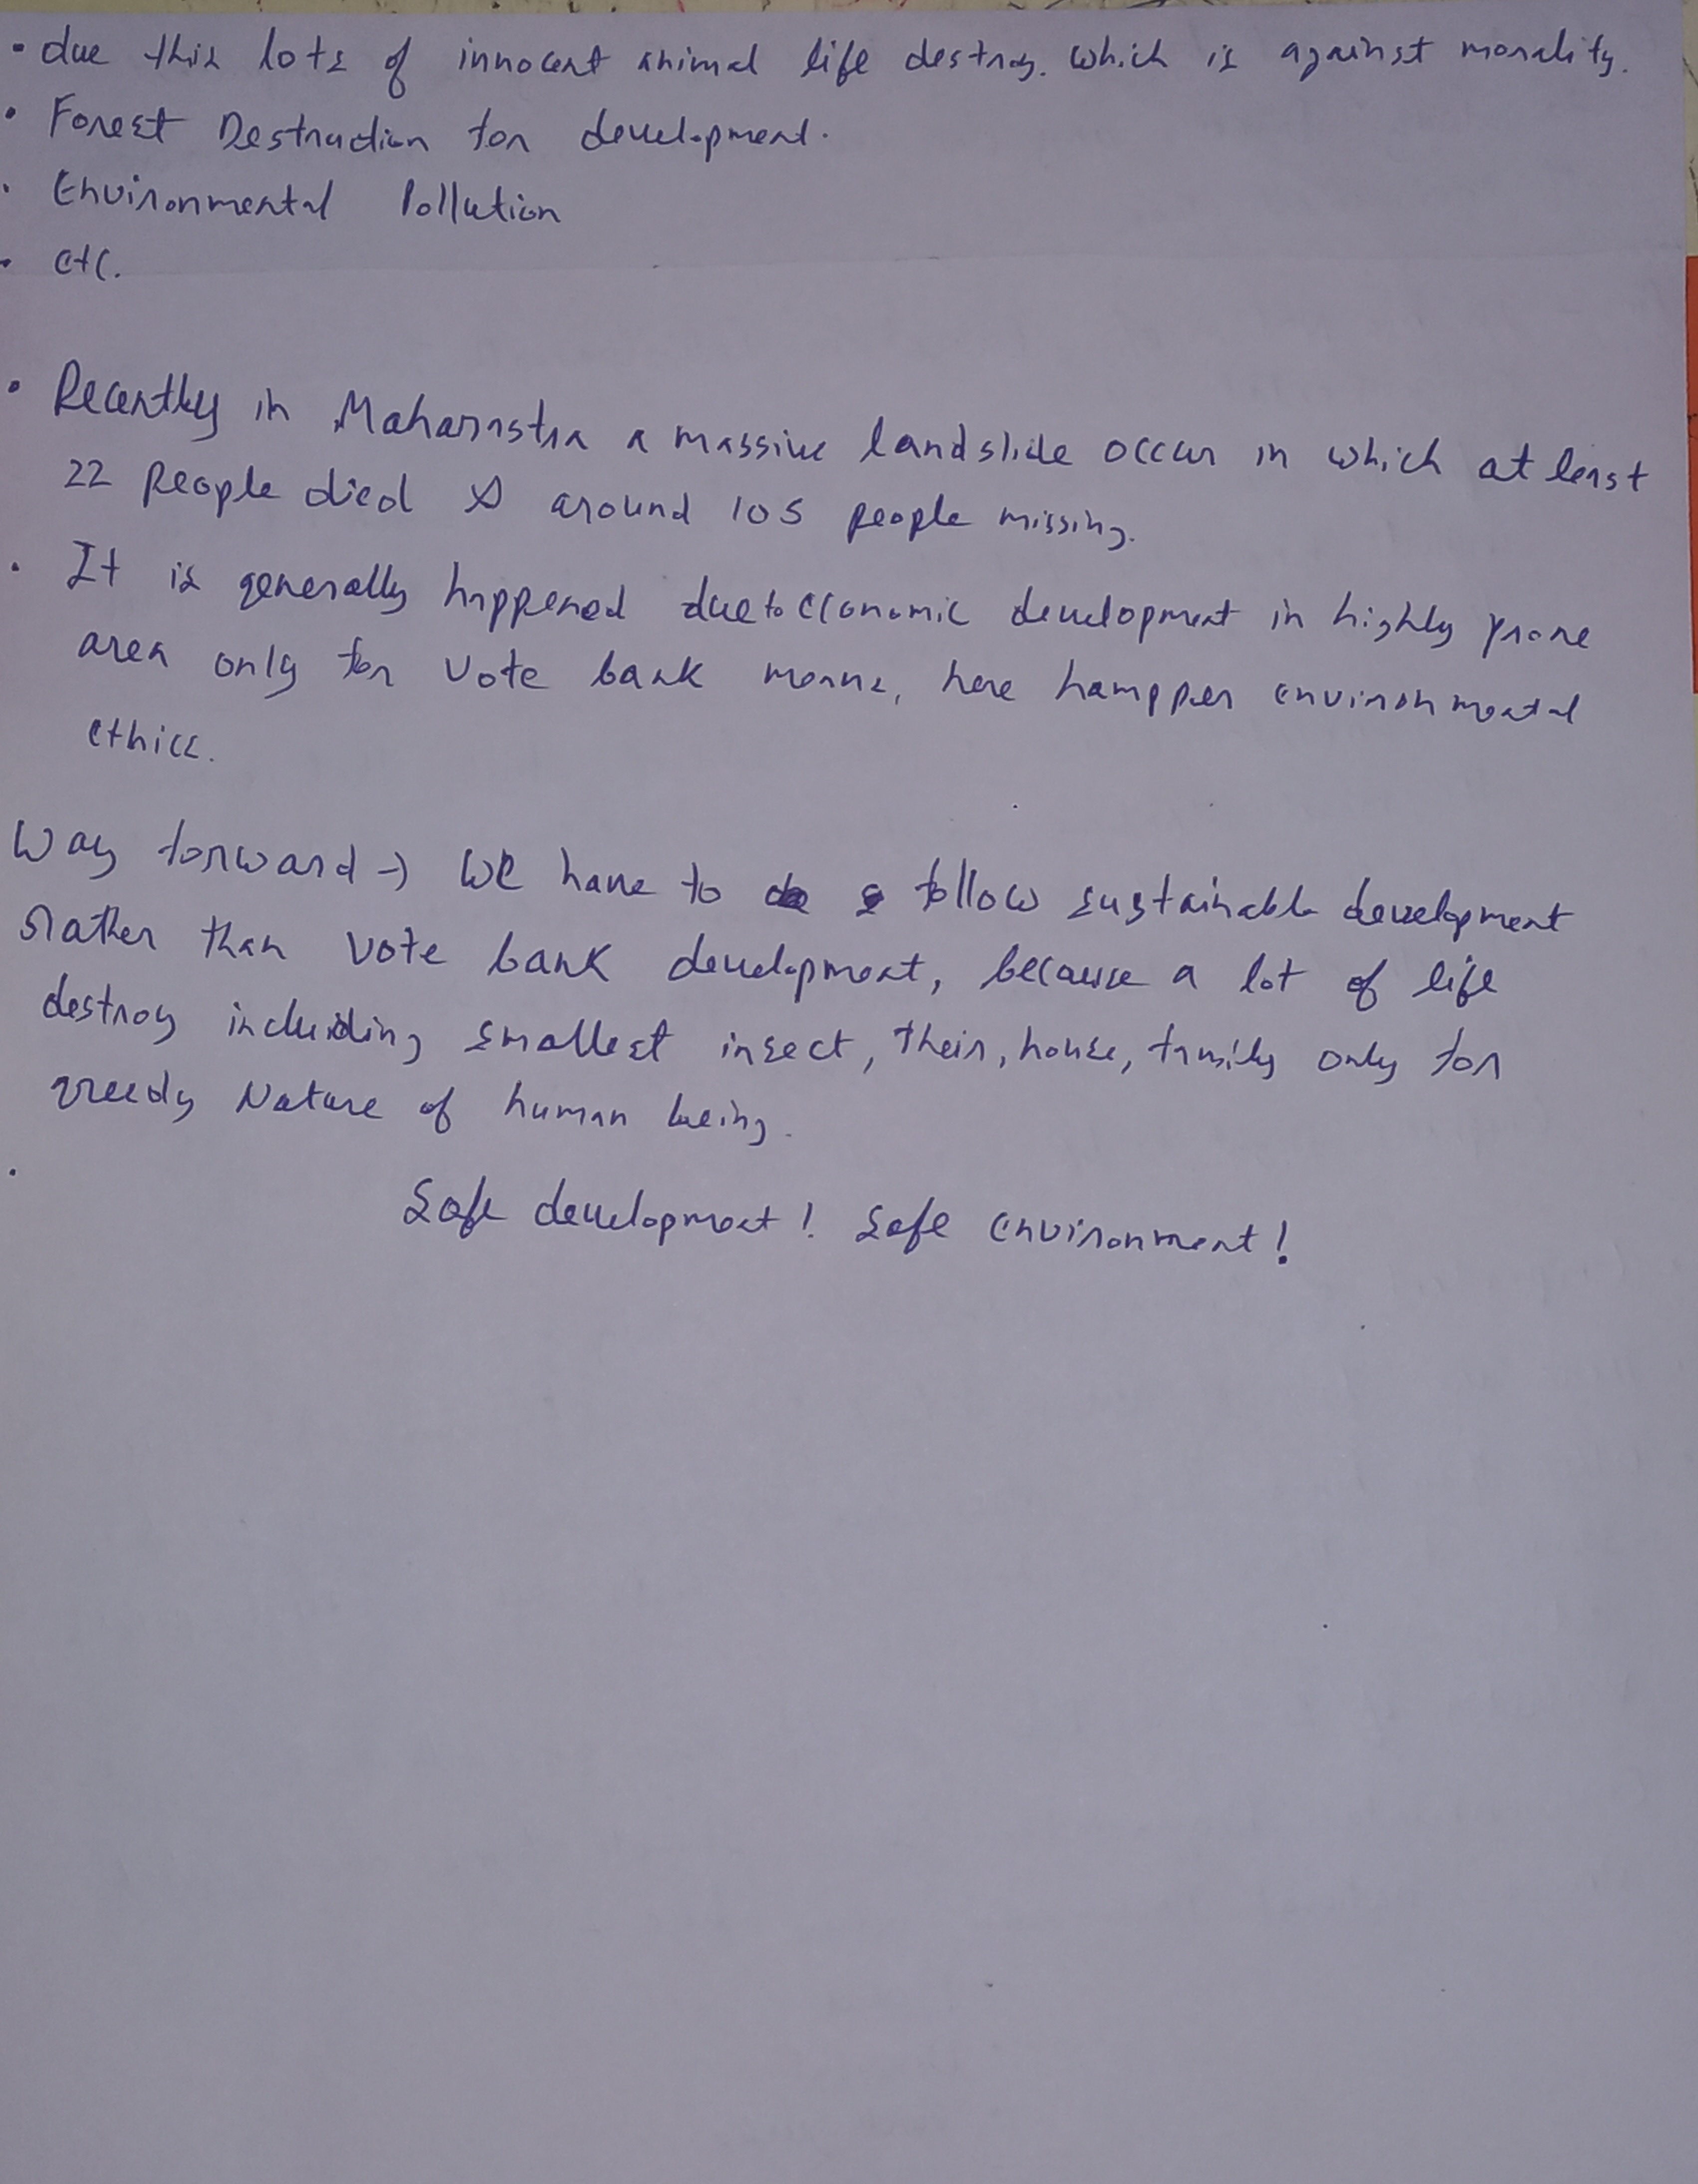 • due this lots of innocent animal life destroy. which is against morality.
• Forest Destruction for development.
• Environmental Pollution
• etc.
• Recently in Maharastra a massive landslide occur in which at least
22 People died & around 105 people missing.
• It is generally happened due to economic development in highly prone
area only for vote bank means, here hampper environmental
ethics.
Way forward → We have to follow sustainable development
rather than vote bank development, because a lot of life
destroy including smallest insect, their, house, family only for
greedy Nature of human being.
Safe development! Safe environment!